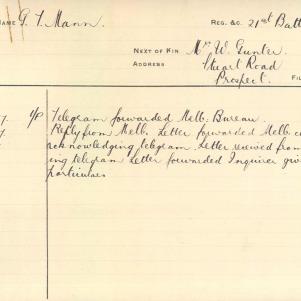 NAME G. T. Mann. REG. &C. 21st Batt
NEXT OF KIN Mr. W. Gunter.
ADDRESS Stuart Road
Prospect. FI
7. Telegram forwarded Melb. Bureau.
7. Reply from Melb. Letter forwarded Melb. c
acknowledging telegram. Letter received from
ing telegram Letter forwarded Inquirer giv
particulars